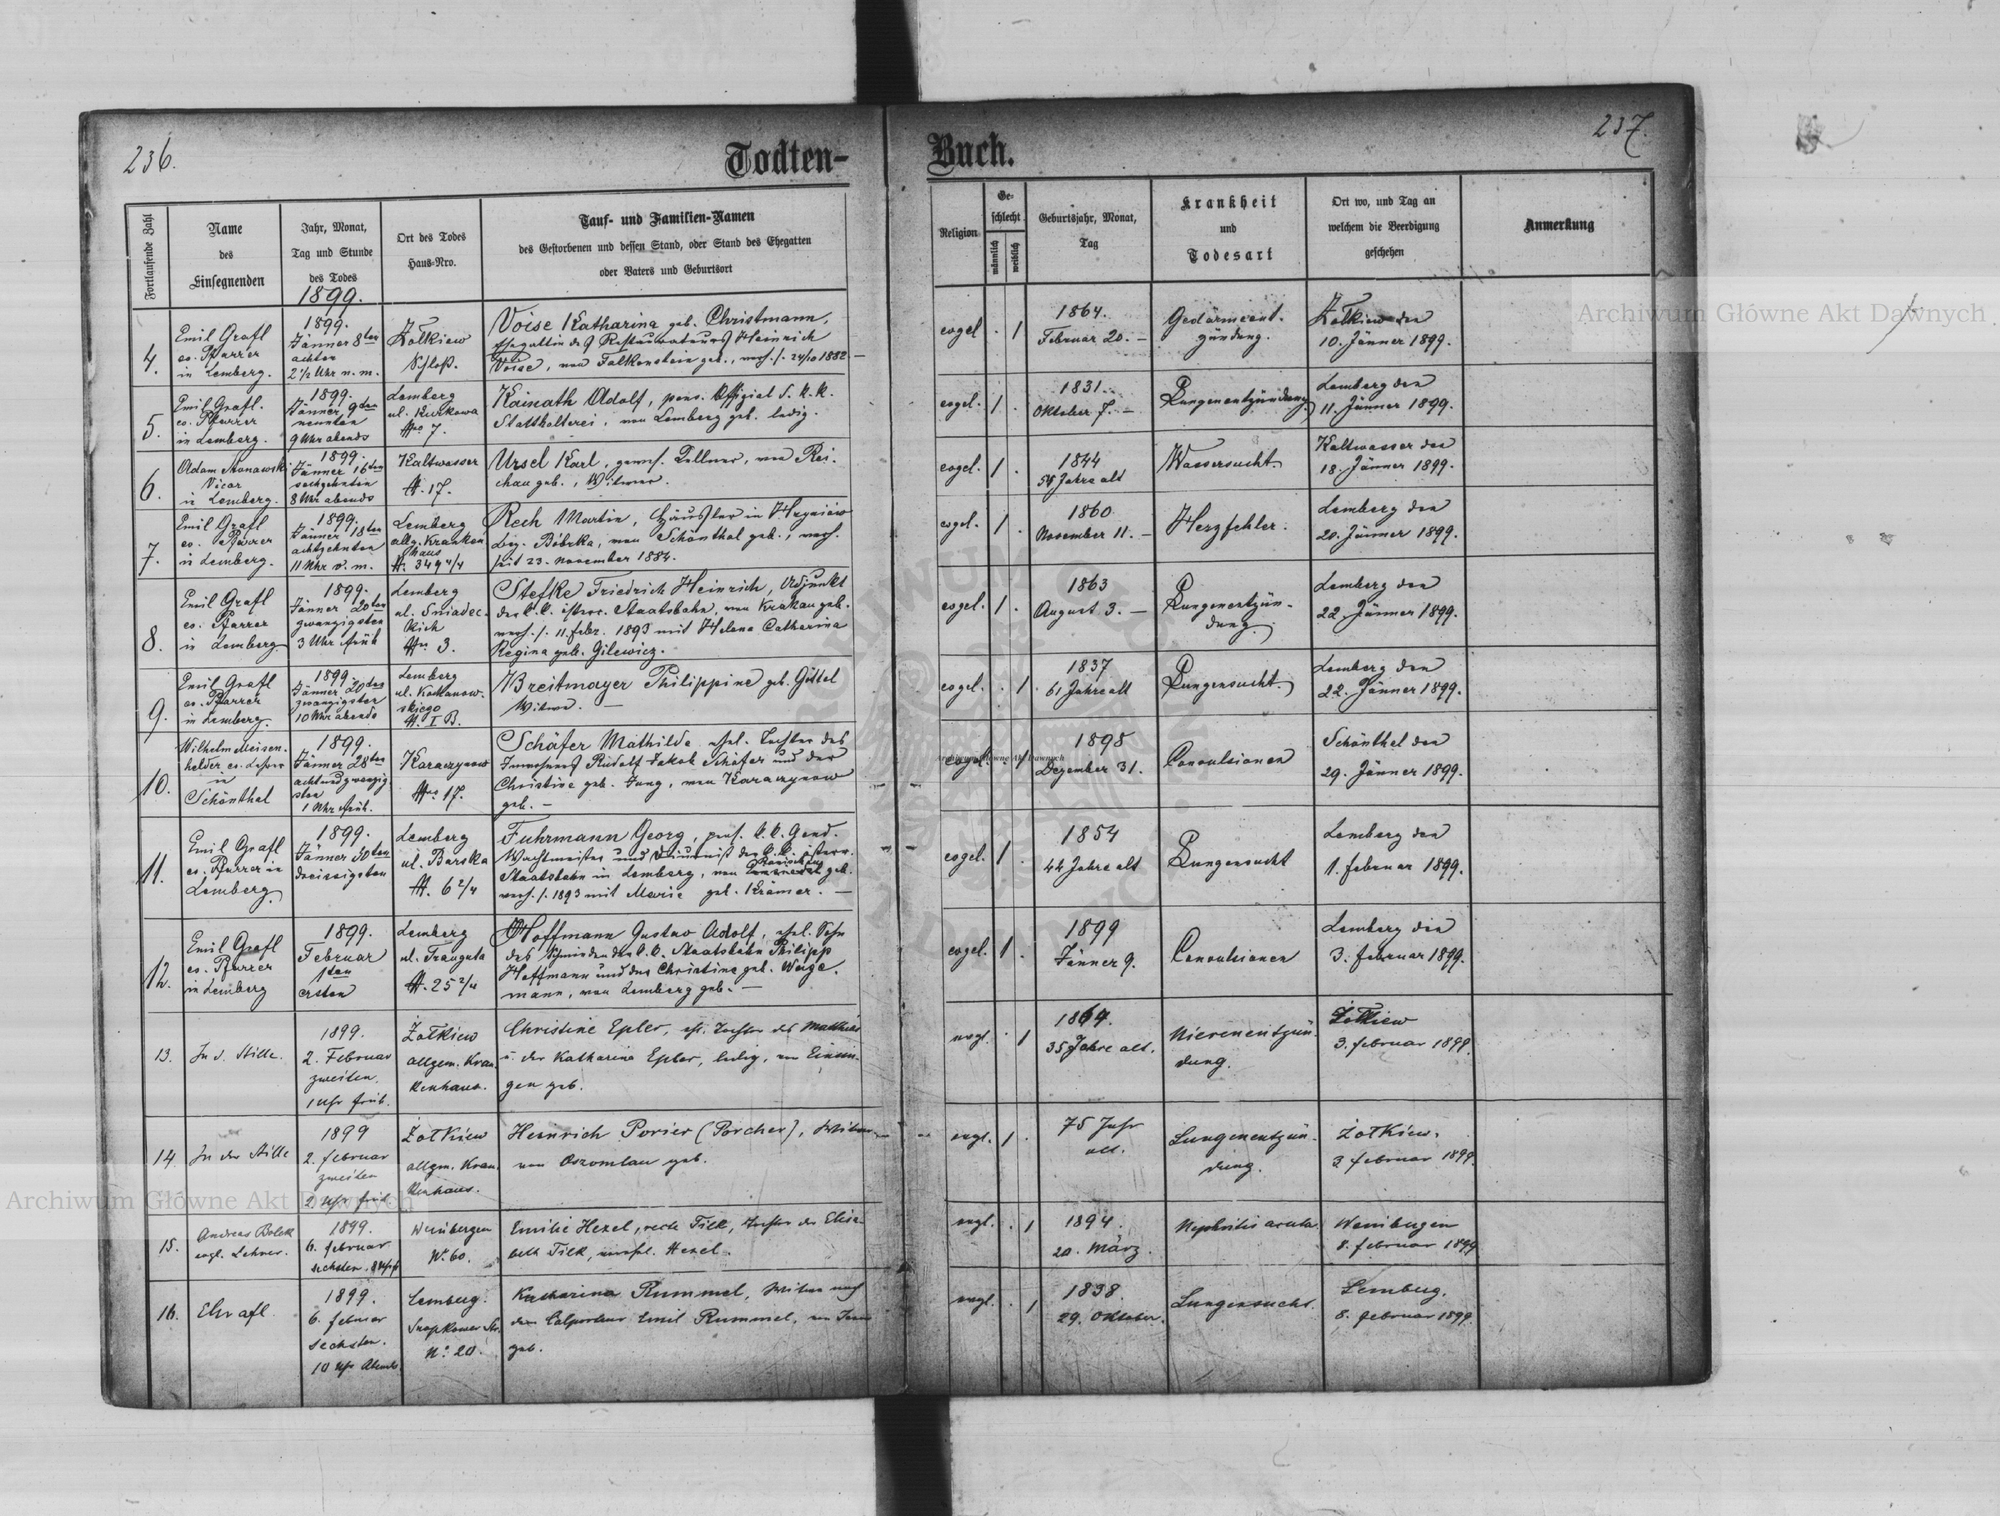 236.
Todten-
Buch.
237.
Fortlaufende Zahl
Name
des
Einsegnenden
Jahr, Monat,
Tag und Stunde
des Todes
1899.
Ort des Todes
Haus-Nro.
Tauf- und Familien-Namen
des Gestorbenen und dessen Stand, oder Stand des Ehegatten
oder Vaters und Geburtsort
Religion
Ge-
schlecht
männlich
weiblich
Geburtsjahr, Monat,
Tag
Krankheit
und
Todesart
Ort wo, und Tag an
welchem die Beerdigung
geschehen
Anmerkung
4.
Emil Grafl
ev. Pfarrer
in Lemberg.
1899.
Jänner 8ten
achten
2 1/2 Uhr n. m.
Żołkiew
Schloß.
Voise Katharina geb. Christmann,
Ehegattin des Restaurateurs Heinrich
Voise, von Falkenstein geb., verh. s. 24/10 1882 —
evgel. . 1
1864.
Februar 20. —
Gedärment-
zündung.
Żołkiew den
10. Jänner 1899.
5.
Emil Grafl.
ev. Pfarrer
in Lemberg.
1899.
Jänner 9ten
neunten
9 Uhr abends
Lemberg
ul. Kurkowa
Nro 7.
Kainath Adolf, pens. Offizial d. k. k.
Statthalterei, von Lemberg geb. ledig.
evgel. 1 .
1831.
Oktober 7. —
Lungenentzündung
Lemberg den
11. Jänner 1899.
6.
Adam
Vicar
in Lemberg.
1899.
Jänner 16ten
sechzehnten
8 Uhr abends
Kaltwasser
N. 17.
Ursel Karl, gewes. Kellner, von Rei-
chau geb., Witwer.
evgel. 1 .
1844
54 Jahre alt
Wassersucht
Kaltwasser den
18. Jänner 1899.
7.
Emil Grafl
ev. Pfarrer
in Lemberg.
1899.
Jänner 18ten
achtzehnten
11 Uhr v. m.
Lemberg
allg. Kranken
haus
N. 349 4/4
Rech Martin, Häusler in
bez. Bóbrka, von Schönthal geb., verh.
seit 23. November 1884.
evgel. 1 .
1860.
November 11. —
Herzfehler.
Lemberg den
20. Jänner 1899.
8.
Emil Grafl
ev. Pfarrer
in Lemberg
1899.
Jänner 20ten
zwanzigsten
3 Uhr früh
Lemberg
ul. Śniadec-
kich
Nro 3.
Stefke Friedrich Heinrich, Adjunkt
der k. k. österr. Staatsbahn, von Krakau geb.
verh. s. 11. febr. 1893 mit Helena Catharina
Regina geb. Gilewicz.
evgel. 1 .
1863
August 3. —
Lungenentzün-
dung.
Lemberg den
22. Jänner 1899.
9.
Emil Grafl
ev. Pfarrer
in Lemberg.
1899.
Jänner 20ten
zwanzigsten
10 Uhr abends
Lemberg
ul. Kochanow-
skiego
N. I B.
Breitmayer Philippine geb. Göttel
Witwe. —
evgel. . 1
1837
61 Jahre alt
Lungensucht.
Lemberg den
22. Jänner 1899.
10.
Wilhelm Meisen-
helder ev. Lehrer
in
Schönthal
1899.
Jänner 28ten
achtundzwanzig
sten
1 Uhr früh.
Karaczynow
Nro 17.
Schäfer Mathilde, ehel. Tochter des
Inwohners Rudolf Jakob Schäfer und der
Christine geb. Jung, von Karaczynow
geb. —
evgel. . 1
1898
Dezember 31.
Convulsionen
Schönthal den
29. Jänner 1899.
11.
Emil Grafl
ev. Pfarrer in
Lemberg.
1899.
Jänner 30ten
dreissigsten
Lemberg
ul. Barska
N. 6 2/4
Fuhrmann Georg, pens. k. k. Gend.
Wachtmeister und Diurnist der k. k. österr.
Staatsbahn in Lemberg, von geb.
verh. s. 1893 mit Marie geb. Krämer. —
evgel. 1 .
1854
44 Jahre alt
Lungensucht
Lemberg den
1. Februar 1899.
12.
Emil Grafl
ev. Pfarrer
in Lemberg
1899.
Februar
1ten
ersten
Lemberg
ul. Trauguta
N. 25 2/4
Hoffmann Gustav Adolf, ehel. Sohn
des Schmiedes der k. k. Staatsbahn Philipp
Hoffmann und der Christine geb. Wege-
mann, von Lemberg geb. —
evgel. 1 .
1899
Jänner 9.
Convulsionen
Lemberg den
3. Februar 1899.
13.
In d. Stille.
1899.
2. Februar
zweiten
1 Uhr früh.
Żołkiew
allgem. Kran-
kenhaus.
Christine Epler, eh. Tochter des Matthias
u. der Katharina Epler, ledig, von Einsin-
gen geb.
evgl. . 1
1864.
35 Jahre alt.
Nierenentzün-
dung.
Żołkiew
3. Februar 1899.
14.
In der Stille
1899
2. Februar
zweiten
2 Uhr früh
Żołkiew
allgem. Kran-
kenhaus.
Heinrich Porier (Porcher), Witwer
von geb.
evgl. 1 .
75 Jahr
alt.
Lungenentzün-
dung.
Żołkiew.
3 Februar 1899.
15.
Andreas Bolek
evgl. Lehrer.
1899.
6. Februar
sechsten. 8 Uhr
Weinbergen
No. 60.
Emilie Hexel, recte Tilk, Tochter der Elisa-
beth Tilk, verehl. Hexel.
evgl. . 1
1894.
20. März.
Nephritis acuta.
Weinbergen
8. Februar 1899
16.
1899.
6. Februar
sechsten.
10 Uhr Abends
Lemberg.
No 20.
Katharina Rummel, Witwe nach
dem Colporteur Emil Rummel, von
geb.
evgl. . 1
1838.
29. Oktober.
Lungensucht.
Lemberg.
8. Februar 1899.
Archiwum Główne Akt Dawnych
Archiwum Główne Akt Dawnych
Archiwum Główne Akt Dawnych